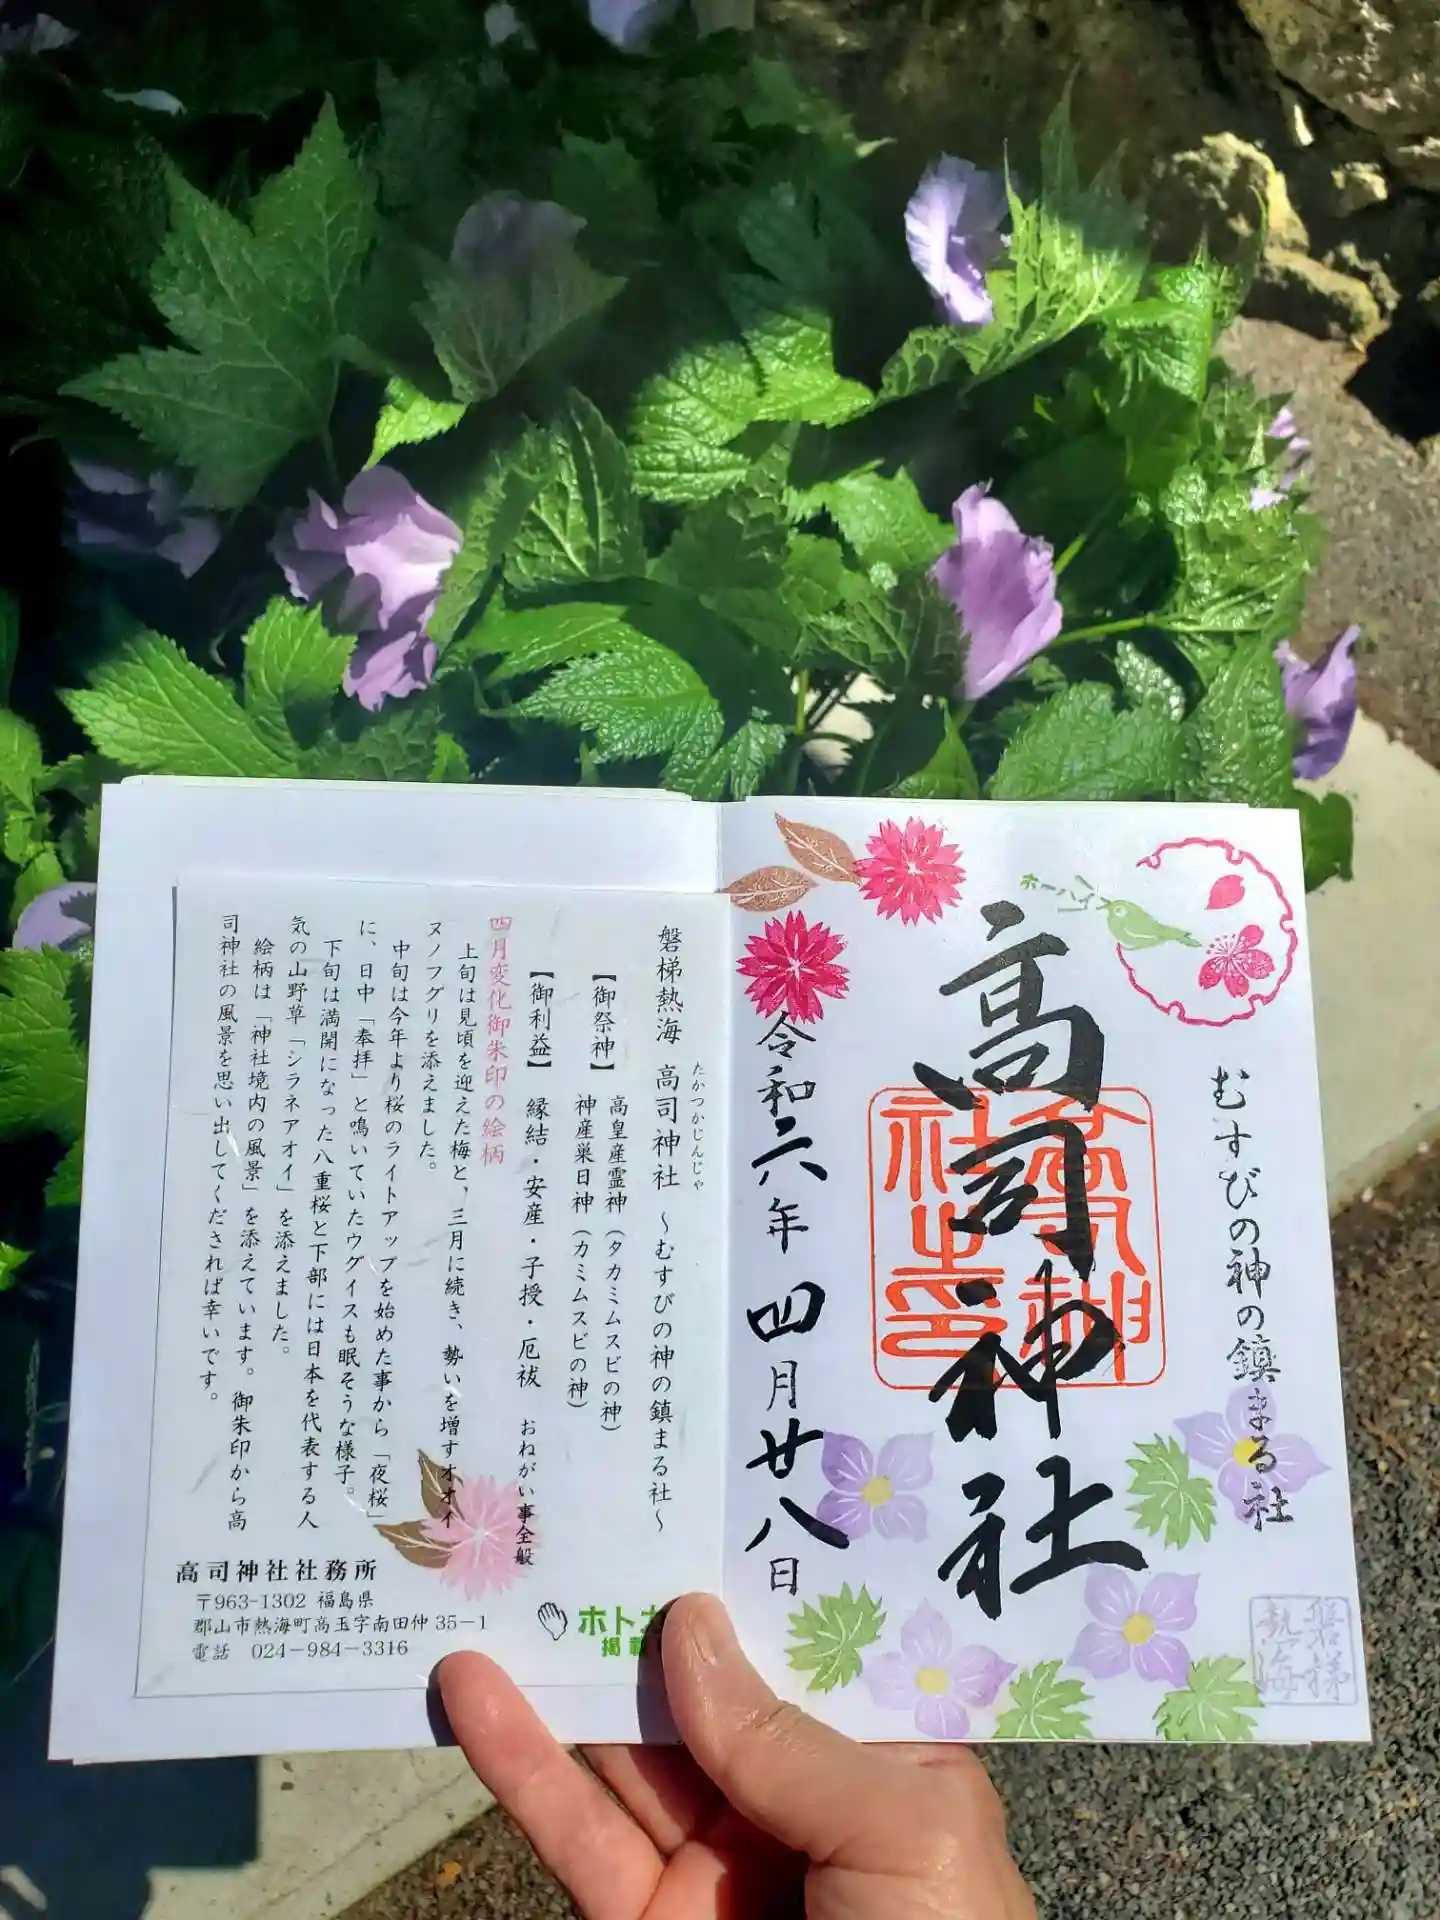 むすびの神の鎮まる社
ホーホケ
高司神社
令和六年 四月廿八日
磐梯熱海
磐梯熱海 高司神社 ～むすびの神の鎮まる社～
たかつかじんじゃ
【御祭神】 高皇産霊神（タカミムスビの神）
神産巣日神（カミムスビの神）
【御利益】 縁結・安産・子授・厄祓 おねがい事全般
四月変化御朱印の絵柄
上旬は見頃を迎えた梅と、三月に続き、勢いを増すオオイ
ヌノフグリを添えました。
中旬は今年より桜のライトアップを始めた事から「夜桜」
に、日中「奉拝」と鳴いていたウグイスも眠そうな様子。
下旬は満開になった八重桜と下部には日本を代表する人
気の山野草「シラネアオイ」を添えました。
絵柄は「神社境内の風景」を添えています。御朱印から高
司神社の風景を思い出してくだされば幸いです。
高司神社社務所
〒963-1302 福島県
郡山市熱海町高玉字南田仲35-1
電話 024-984-3316
ホトカ
掲載